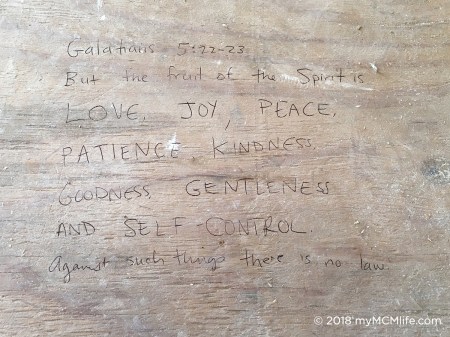 Galatians 5:22-23
But the fruit of the Spirit is
LOVE, JOY, PEACE,
PATIENCE KINDNESS,
GOODNESS, GENTLENESS
AND SELF-CONTROL.
Against such things there is no law.
© 2018 myMCMlife.com